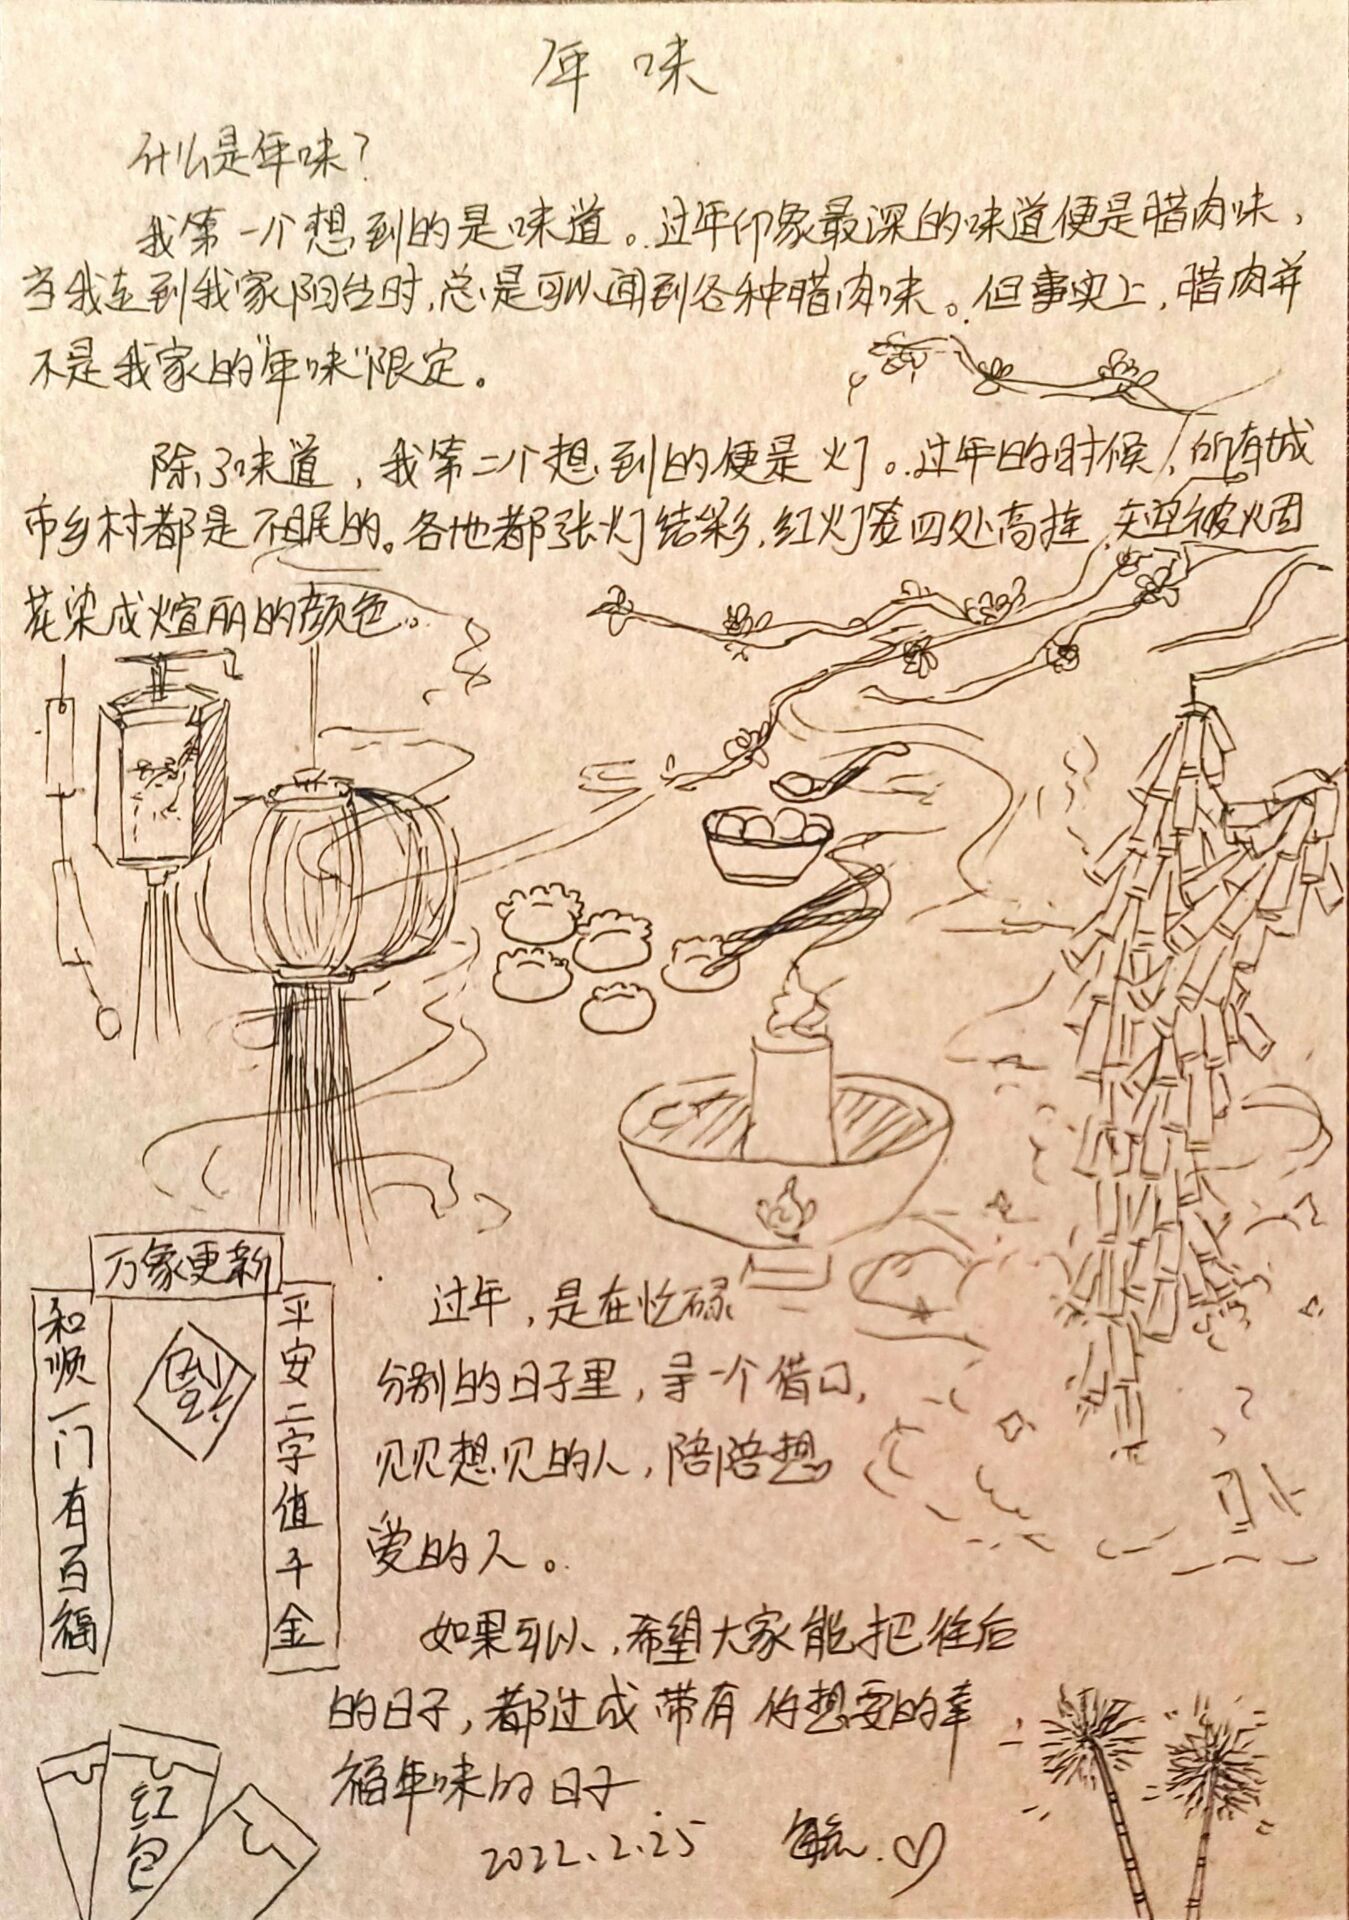 年味
什么是年味？
我第一个想到的是味道。过年印象最深的味道便是腊肉味，
当我走到我家阳台时，总是可以闻到各种腊肉味。但事实上，腊肉并
不是我家的“年味”限定。
除了味道，我第二个想到的便是灯。过年的时候，所有城
市乡村都是不眠的。各地都张灯结彩，红灯笼四处高挂，天空被烟
花染成煊丽的颜色。
万象更新
和顺一门有百福
福
平安二字值千金
过年，是在忙碌
分别的日子里，寻一个借口，
见见想见的人，陪陪想
爱的人。
如果可以，希望大家能把往后
的日子，都过成带有你想要的幸
福年味的日子
2022.2.25
红包